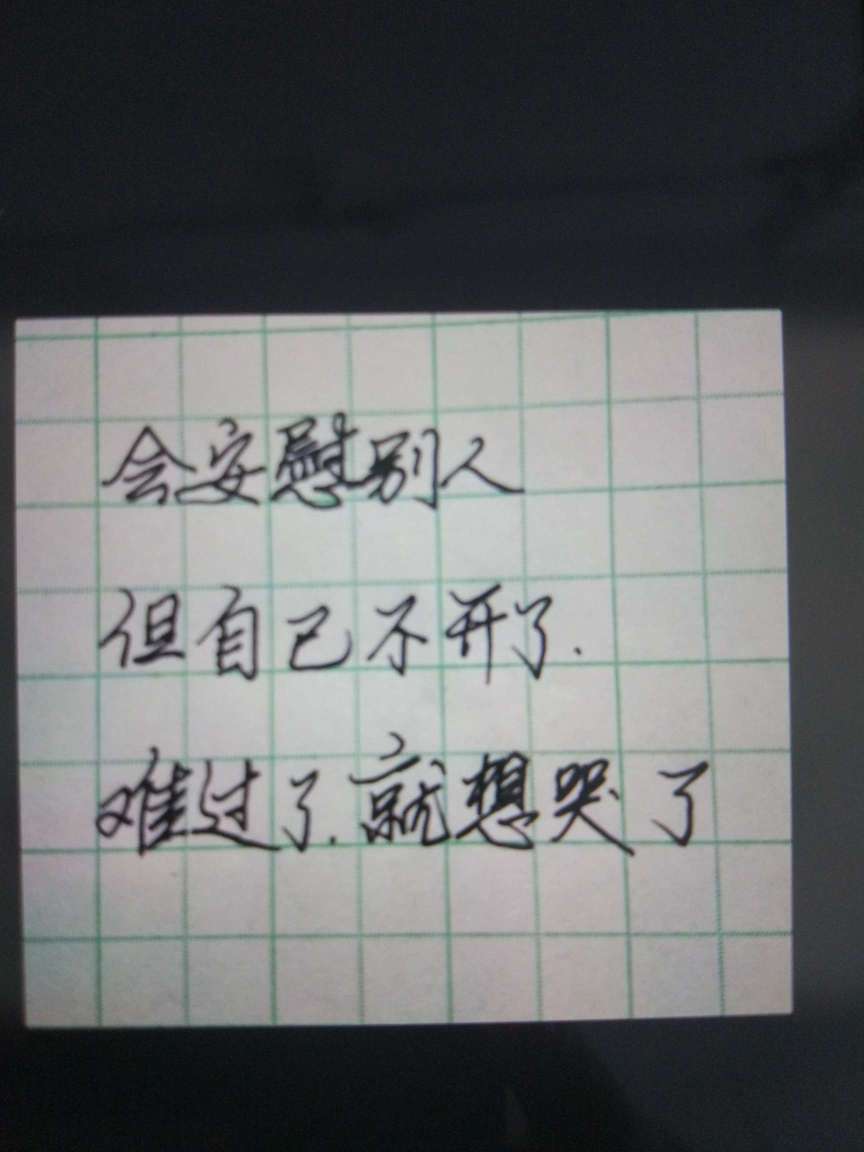 会安慰别人
但自己不开了.
难过了.就想哭了